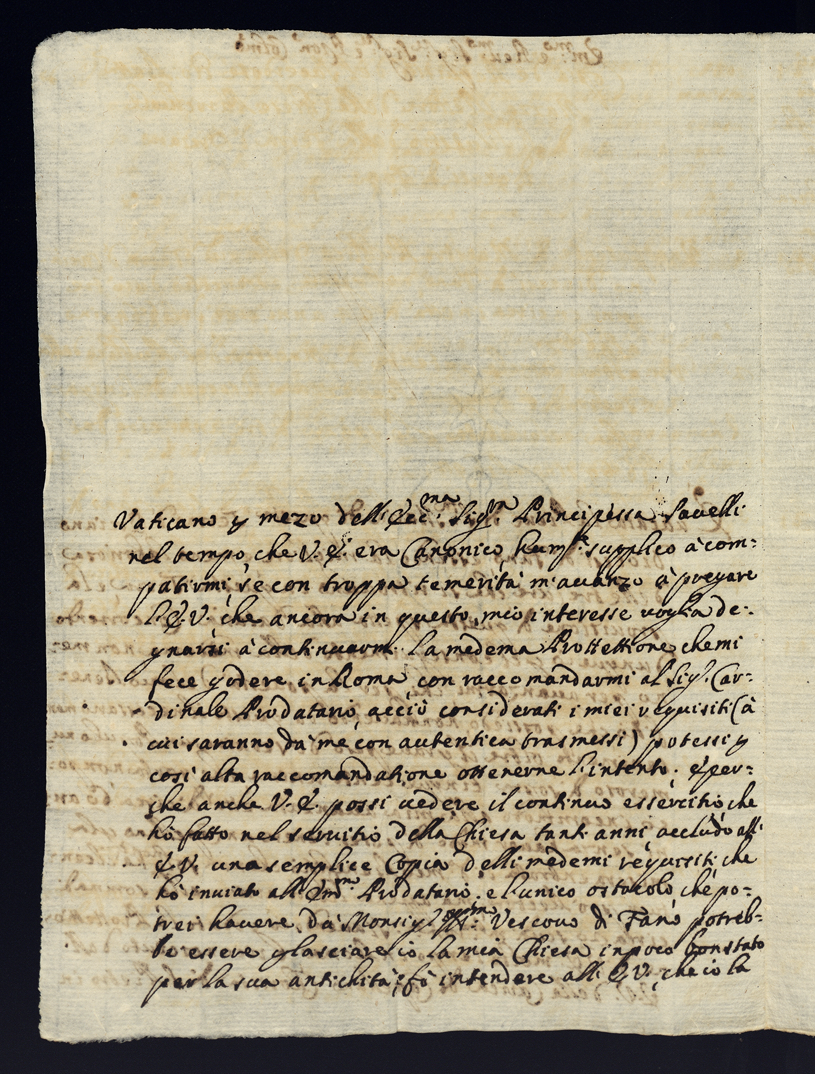 Vaticano p mezo dell' Ecc.ma Sig.ra Principessa Savelli
nel tempo che V. E. era Canonico hum.te supplico à com-
patirmi, se con troppa temerità m'avanzo à pregare
l'E. V. che ancora in questo mio interesse voglia de-
gnarsi à continuarmi la medema Prottettione che mi
fece godere in Roma con raccomandarmi al Sig.r Car-
dinale Prodatario, acciò considerati i miei requisiti (à
cui saranno da me con autentica trasmessi) potessi p
così alta raccomandatione ottenerne l'intento. E per-
che anche V. E. possi vedere il continuo essercitio che
hò fatto nel servitio della Chiesa tanti anni accludo all'
E. V. una semplice Copia delli medemi requisiti che
hò inviato all' Em.mo Prodatario, e l'unico ostacolo che po-
trei havere da Monsig.r Vescovo di Fano potreb-
be essere p lasciare io la mia Chiesa in poco bon stato
per la sua antichità; fò intendere all' E. V. che io la